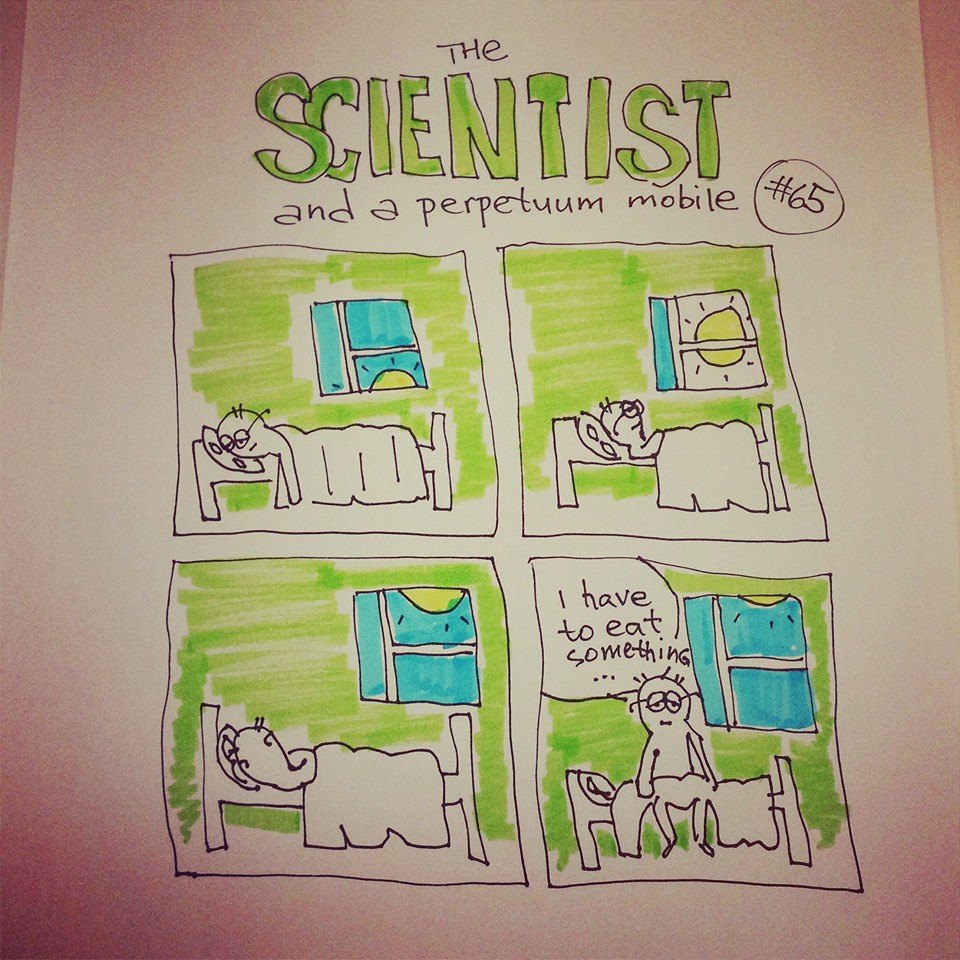 THe
SCIENTIST
and a perpetuum mobile
#65
I have
to eat
something
...